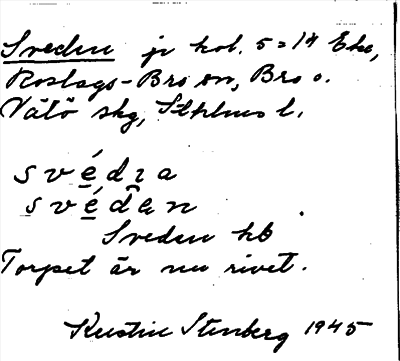 Sveden jr hol. 5=14 Eke,
Roslags-Bro sn, Bro o.
Vätö skg, Sthlms l.
svédɪa
svéden
Sveden hb
Torpet är nu rivet.
Kerstin Stenberg 1945